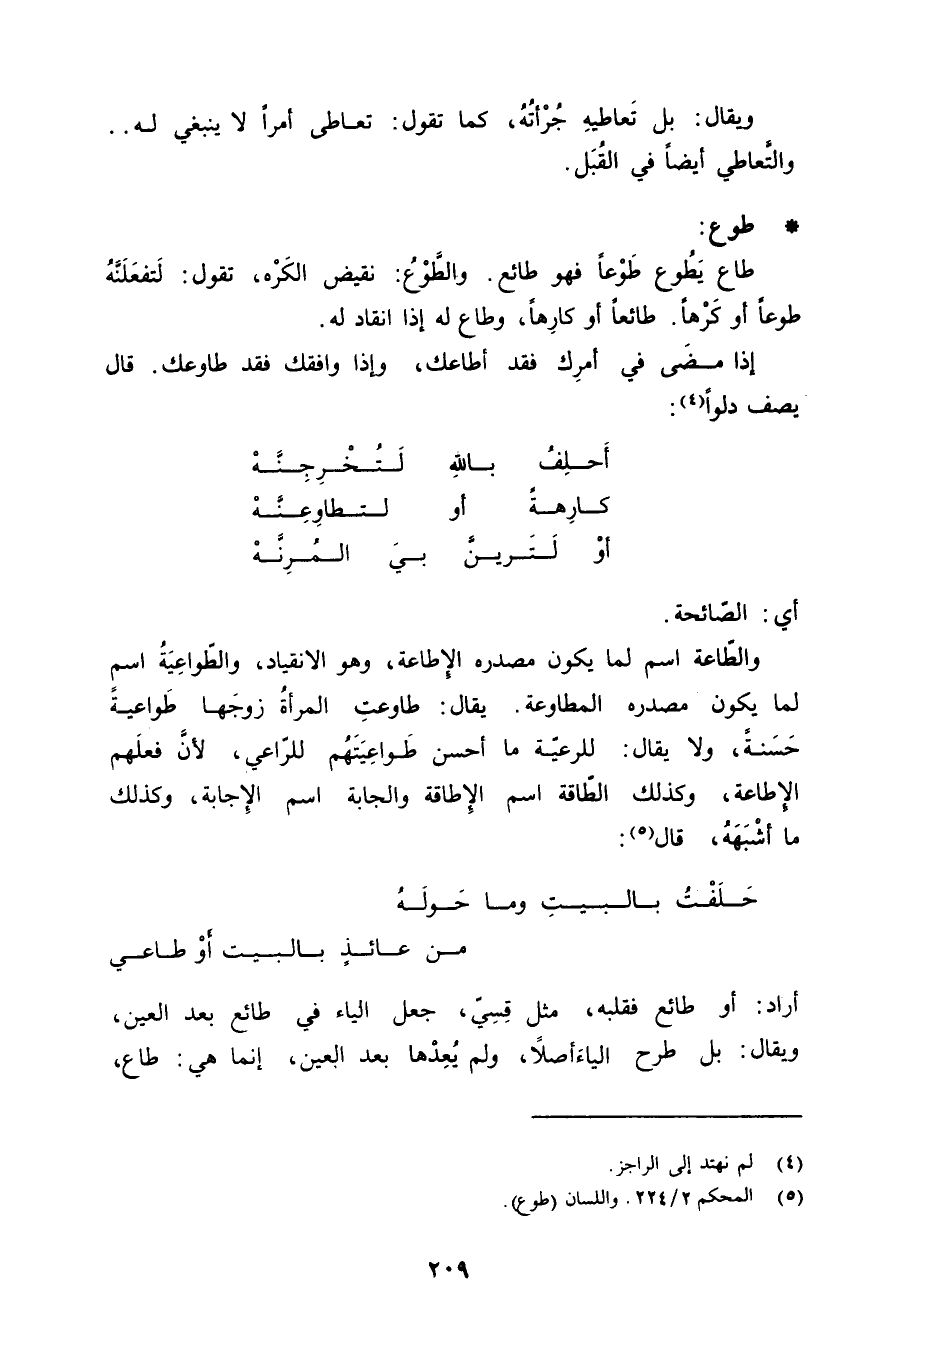 ويقال: بل تَعاطيهِ جُرْأتُهُ، كما تقول: تعـاطى أمراً لا ينبغي لـه..
والتَّعاطي أيضاً في القُبَل.
* طوع:
طاع يَطُوع طَوْعاً فهو طائع. والطَّوْعُ: نقيض الكَرْه، تقول: لَتفعَلَنَّهُ
طوعاً أو كَرْهاً. طائعاً أو كارِهاً، وطاع له إذا انقاد له.
إذا مـضَى في أمرِك فقد أطاعك، وإذا وافقك فقد طاوعك. قال
يصف دلواً(٤):
أَحـلِفُ بـاللهِ لَـتُـخْـرِجِـنَّـهْ
كـارِهـةً أو لـتـطاوِعِـنَّـهْ
أوْ لَـتَـرينَّ بـيَ الـمُـرِنَّـهْ
أي: الصّائحة.
والطّاعة اسم لما يكون مصدره الإطاعة، وهو الانقياد، والطّواعِيَةُ اسم
لما يكون مصدره المطاوعة. يقال: طاوعتِ المرأةُ زوجَهـا طَواعيـةً
حَسَنـةً، ولا يقال: للرعيّـة ما أحسن طَـواعِيَتَهُم للرّاعي، لأنَّ فعلَهم
الإطاعة، وكذلك الطّاقة اسم الإطاقة والجابة اسم الإجابة، وكذلك
ما أشْبَهَهُ، قال(٥):
حَـلَفْـتُ بـالـبـيـتِ ومـا حَـولَـهُ
مـن عـائـذٍ بـالـبـيـت أَوْ طـاعـي
أراد: أو طائع فقلبه، مثل قِسِيّ، جعل الياء في طائع بعد العين،
ويقال: بل طرح الياءأصلًا، ولم يُعِدْها بعد العين، إنما هي: طاع،
(٤) لم نهتد إلى الراجز.
(٥) المحكم ٢/ ٢٢٤. واللسان (طوع).
٢٠٩